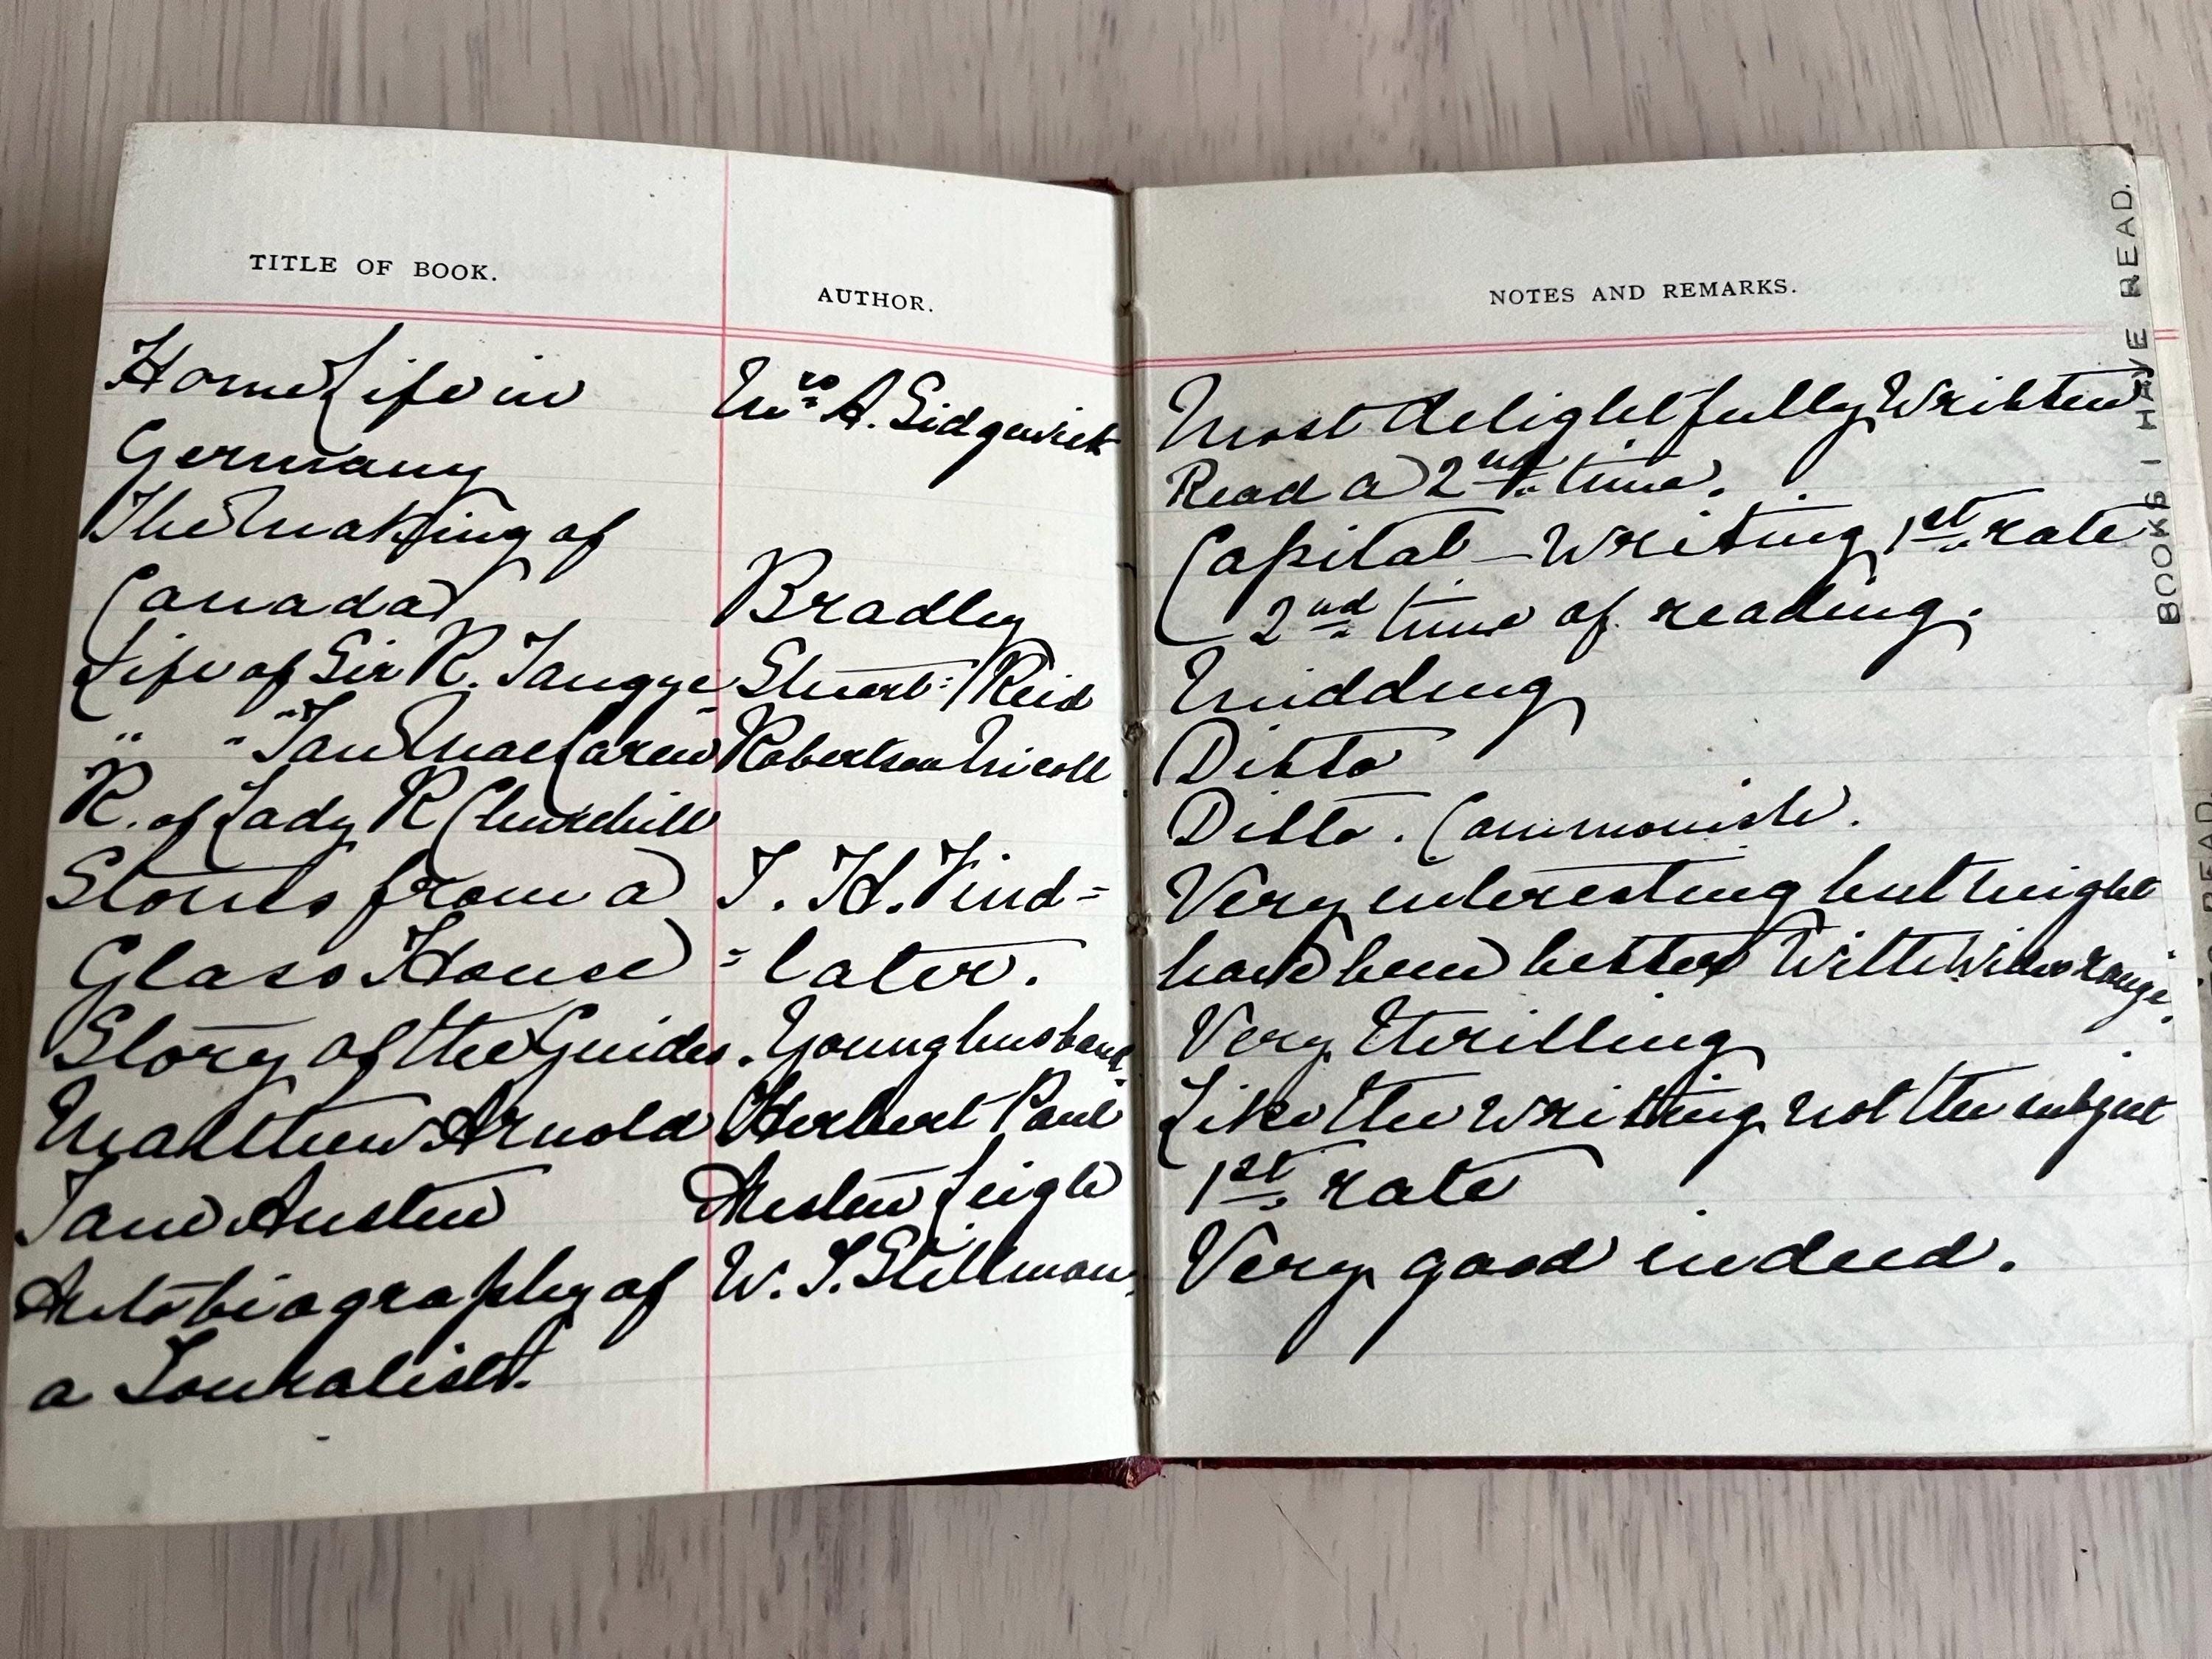 TITLE OF BOOK.
AUTHOR.
Home Life in
Mrs. A. Sidgwick
Germany
The Making of
Canada
Bradley
Life of Sir R. Tangye
Stuart = Reid
" " Ian Maclaren
Robertson Nicoll
R. of Lady R Churchill
Stories from a
T. H. Vind=
Glass House
=later.
Story of the Guides.
Younghusband.
Matthew Arnold
Herbert Paul
Jane Austen
Austen Leigh
Autobiography of
W. J. Stillman.
a Journalist.
NOTES AND REMARKS.
Most delightfully Written
Read a 2nd. time.
Capital - Writing 1st. rate
2nd time of reading.
Midding
Ditto
Ditto. Commonish.
Very interesting but might
have been better With wider range.
Very thrilling
Like the writing not the subject
1st. rate
Very good indeed.
BOOKS I HAVE READ.